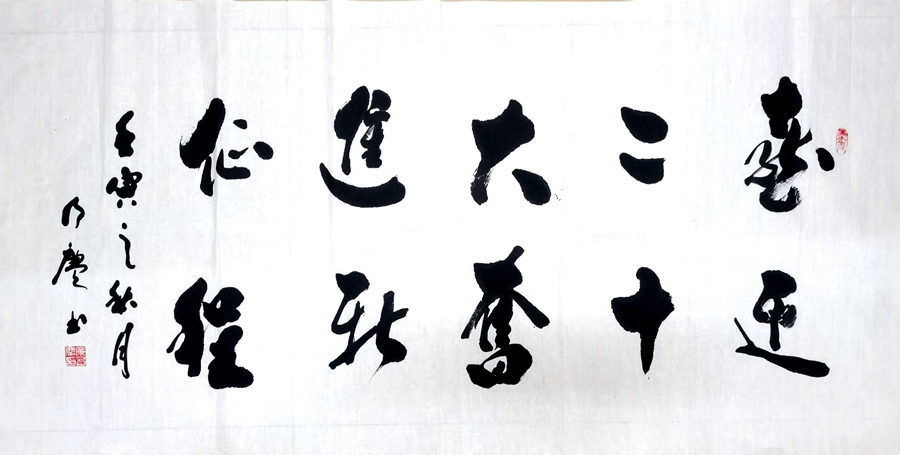 喜迎
二十
大奮
進新
征程
壬寅之秋月
乃慶书